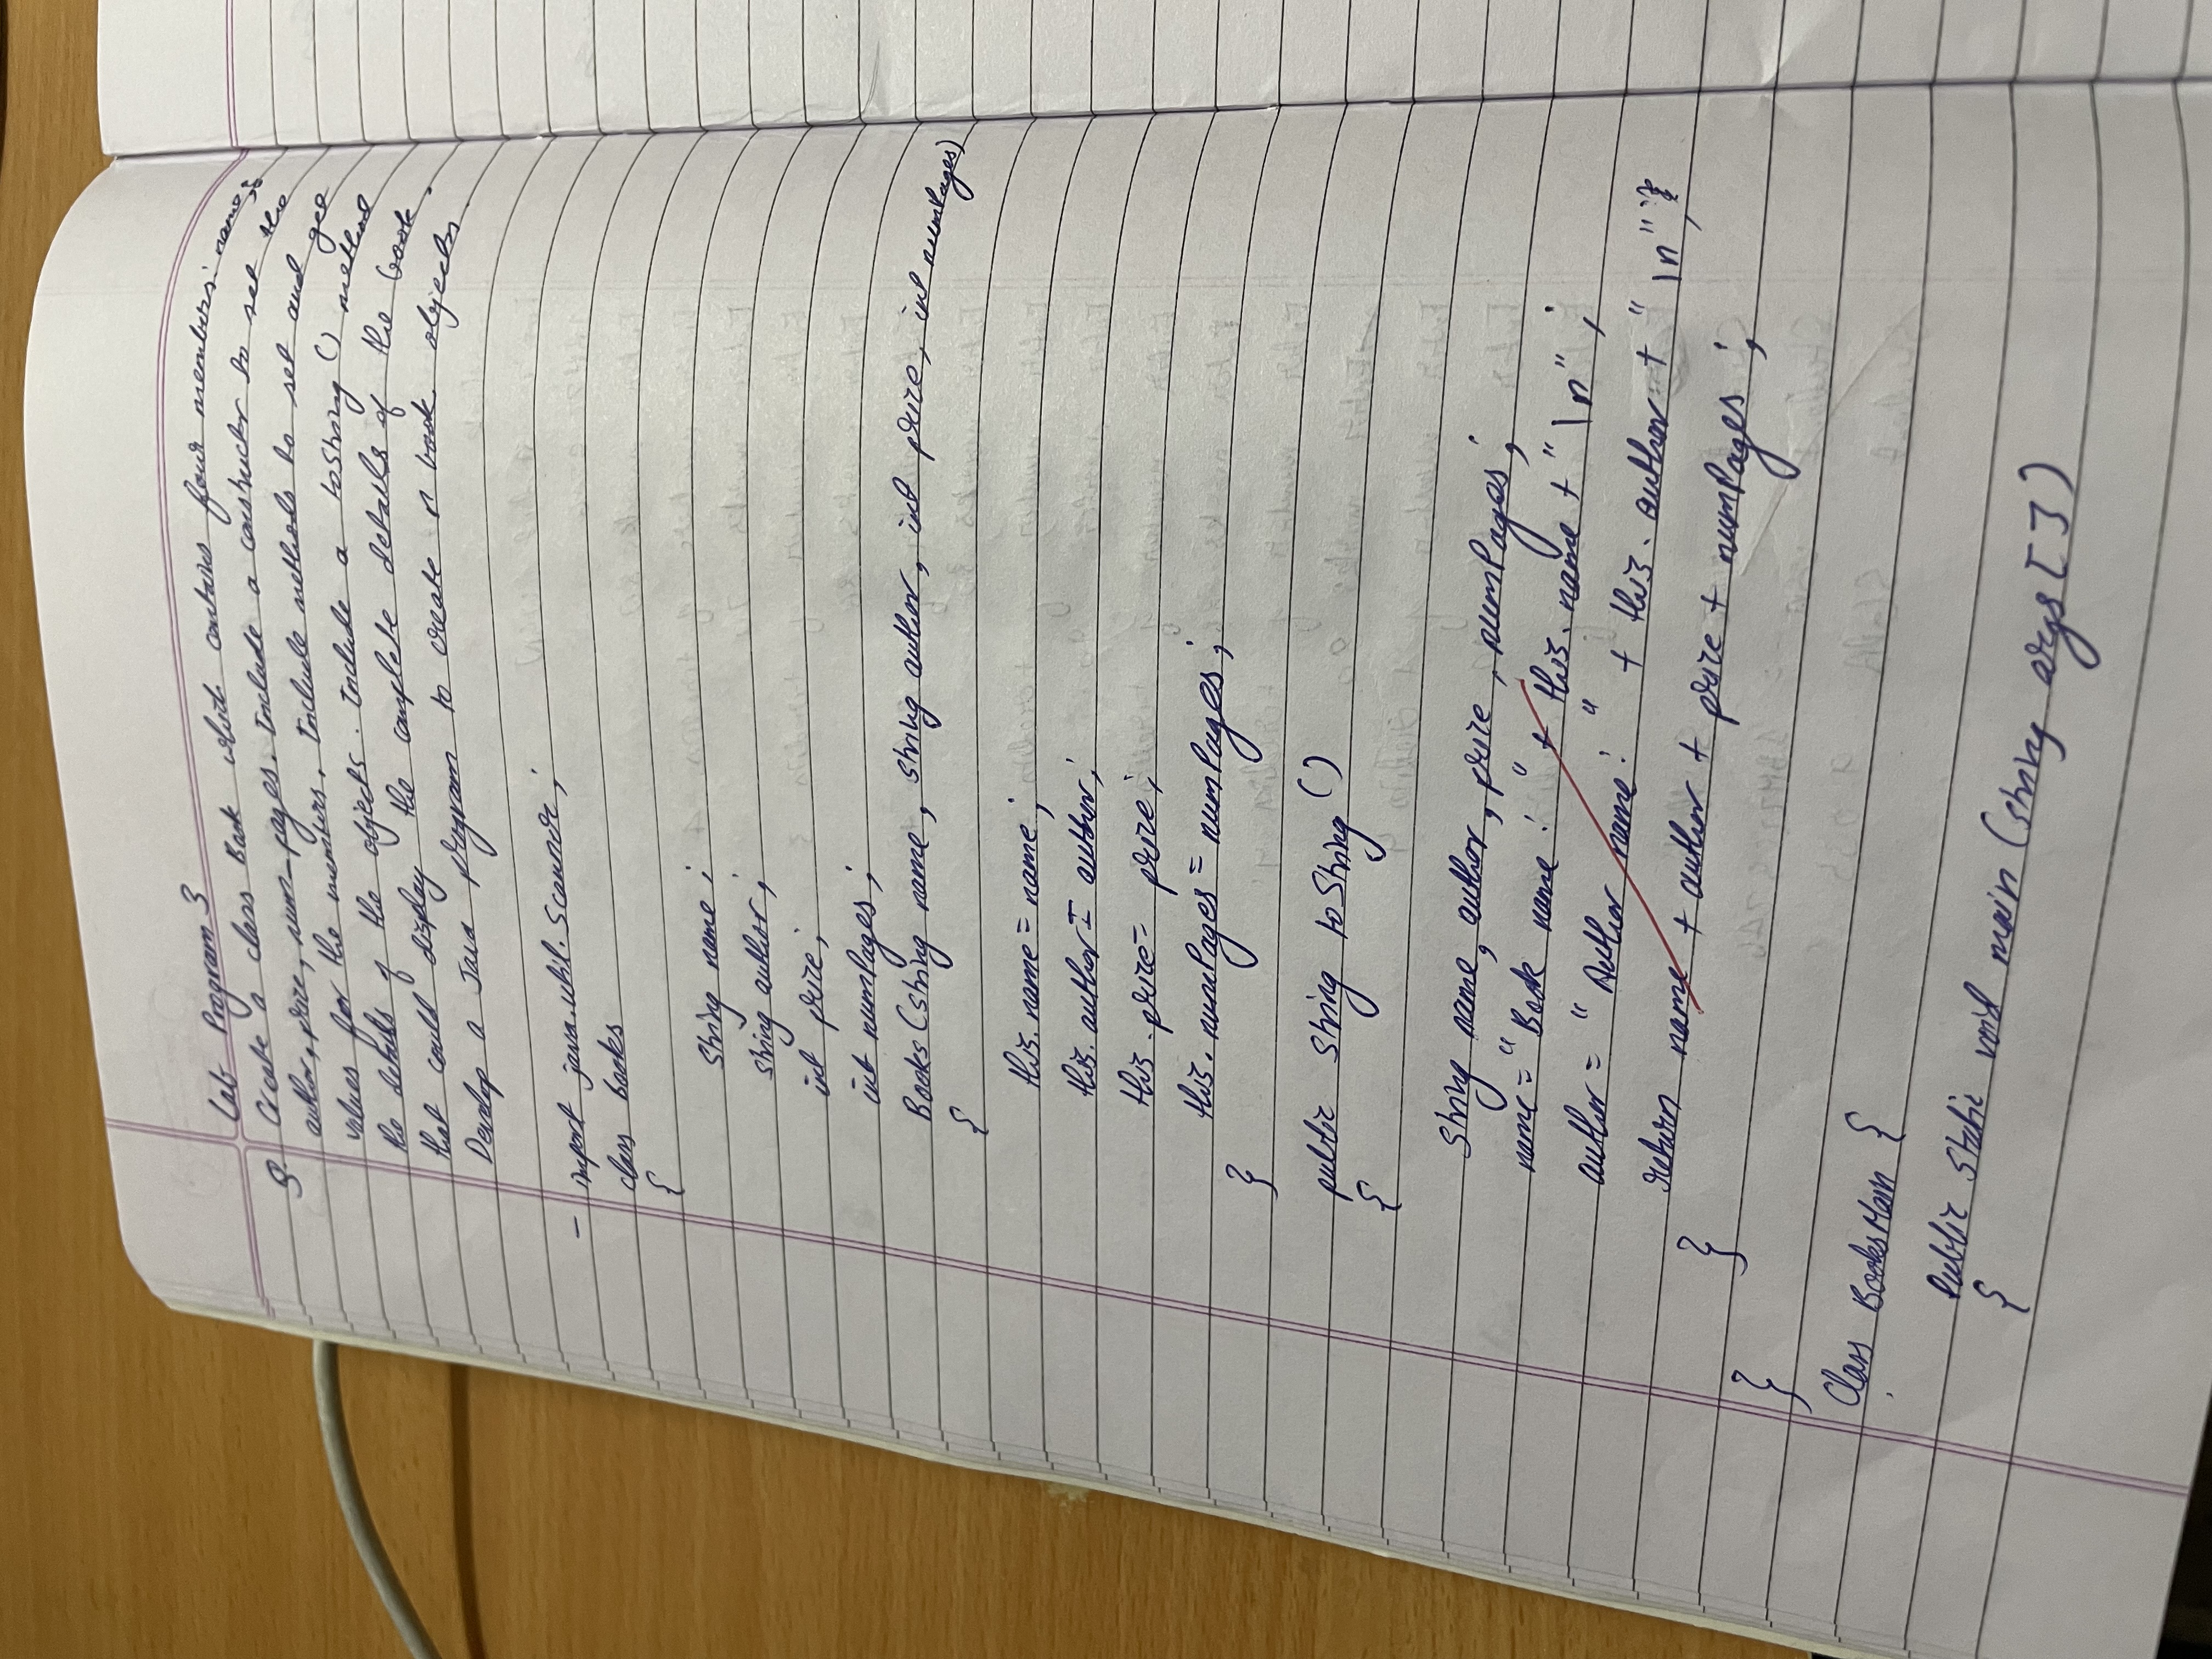 Lab Program 3
Q- Create a class Book which contains four members: name,
author, price, num_pages. Include a constructor to set the
values for the members. Include methods to set and get
the details of the objects. Include a toString() method
that could display the complete details of the book.
Develop a Java program to create n book objects.
- import java.util.Scanner;
class books
{
String name;
String author;
int price;
int numPages;
Books (String name, String author, int price, int numPages)
{
this.name = name;
this.author = author;
this.price = price;
this.numPages = numPages;
}
public String toString()
{
String name, author, price, numPages;
name = "Book name: " + this.name + "\n";
author = "Author name: " + this.author + "\n";
return name + author + price + numPages;
}
}
Class BooksMain {
Public Static void main (String args[])
{